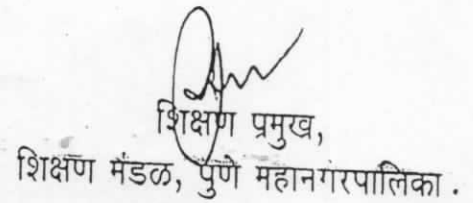 शिक्षण प्रमुख,
शिक्षण मंडळ, पुणे महानगरपालिका .